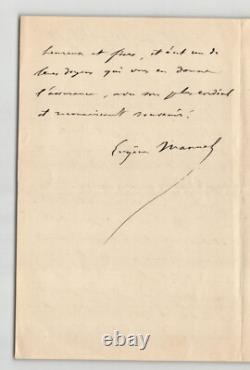 heureux et fiers, et c'est un de
leurs doyens qui vous en donne
l'assurance, avec son plus cordial
et reconnaissant souvenir!
Eugène Manuel
© ebay.com